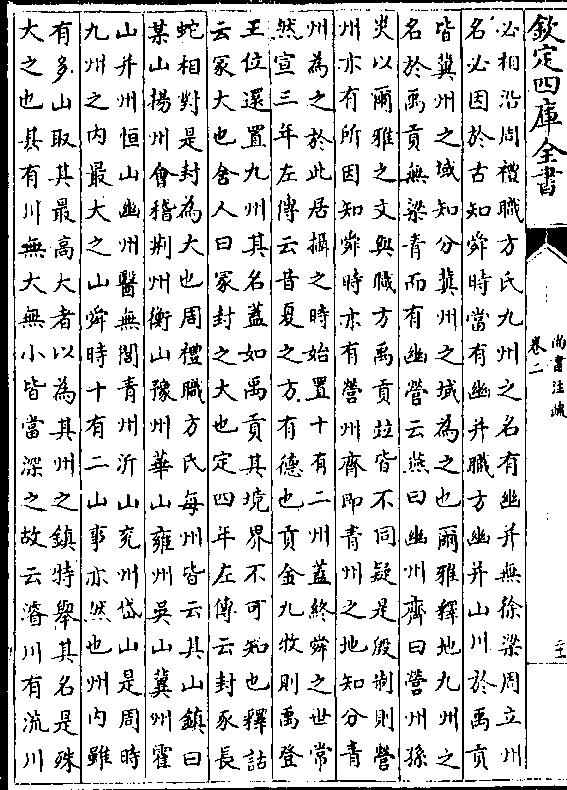 欽定四庫全書
尚書注疏
卷二
必相沿周禮職方氏九州之名有幽并無徐梁周立州
名必因於古知舜時當有幽并職方幽并山川於禹貢
皆冀州之域知分冀州之域為之也爾雅釋地九州之
名於禹貢無梁青而有幽營云燕曰幽州齊曰營州孫
炎以爾雅之文與職方禹貢竝皆不同疑是殷制則營
州亦有所因知舜時亦有營州齊即青州之地知分青
州為之於此居攝之時始置十有二州蓋終舜之世常
然宣三年左傳云昔夏之方有德也貢金九牧則禹登
王位還置九州其名蓋如禹貢其境界不可知也釋詁
云冢大也舍人曰冢封之大也定四年左傳云封豕長
蛇相對是封為大也周禮職方氏每州皆云其山鎮曰
某山揚州會稽荆州衡山豫州華山雍州吳山冀州霍
山并州恒山幽州醫無閭青州沂山兖州岱山是周時
九州之內最大之山舜時十有二山事亦然也州內雖
有多山取其最高大者以為其州之鎮特舉其名是殊
大之也其有川無大無小皆當深之故云濬川有流川